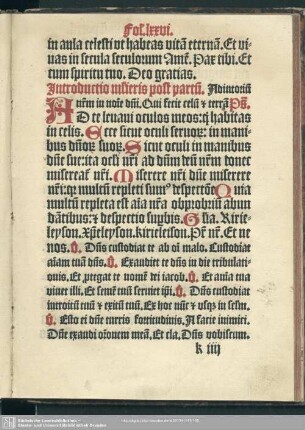 Fol. lxxvi.
in aula celesti vt habeas vitā eternā. Et vi-
uas in secula seculorum Amē. Pax tibi. Et
cum spiritu tuo. Deo gratias.
Introductio mlieris post partū. Adiutoriū
nr̄m in noīe dn̄i. Qui fecit celū ⁊ terrā p̄s.
Ad te leuaui oculos meos: q̄ habitas
in celis. Ecce sicut oculi seruoꝝ: in mani-
bus dn̄oꝝ suoꝝ. Sicut oculi in manibus
dn̄e sue: ita ocli nr̄i ad dn̄m deū nr̄m donec
misereať nr̄i. Miserere nr̄i dn̄e miserere
nr̄i: qꝛ multū repleti sumꝰ despectōe. Quia
multū repleta est aīa nr̄a obprobriū abun
dātibus: ⁊ despectio supbis. Glīa. Kirie-
leyson. Xp̄eleyson. kirieleison. Pr̄ nr̄. Et ne
nos. V. Dn̄s custodiat te ab oī malo. Custodiat
aīam tuā dn̄s. V. Exaudiet te dn̄s in die tribulati-
onis. Et ꝓtegat te nomē dei iacob. V. Et aīa tua
viuet illi. Et semē tuū seruiet ip̄i. V. Dn̄s custodiat
introitū tuū ⁊ exitū tuū. Ex hoc nūc ⁊ vsqꝫ in sclm.
V. Esto ei dn̄e turris fortitudinis. A facie inimici.
Dn̄e exaudi orōnem meā. Et cla. Dn̄s vobiscum.
k iiij